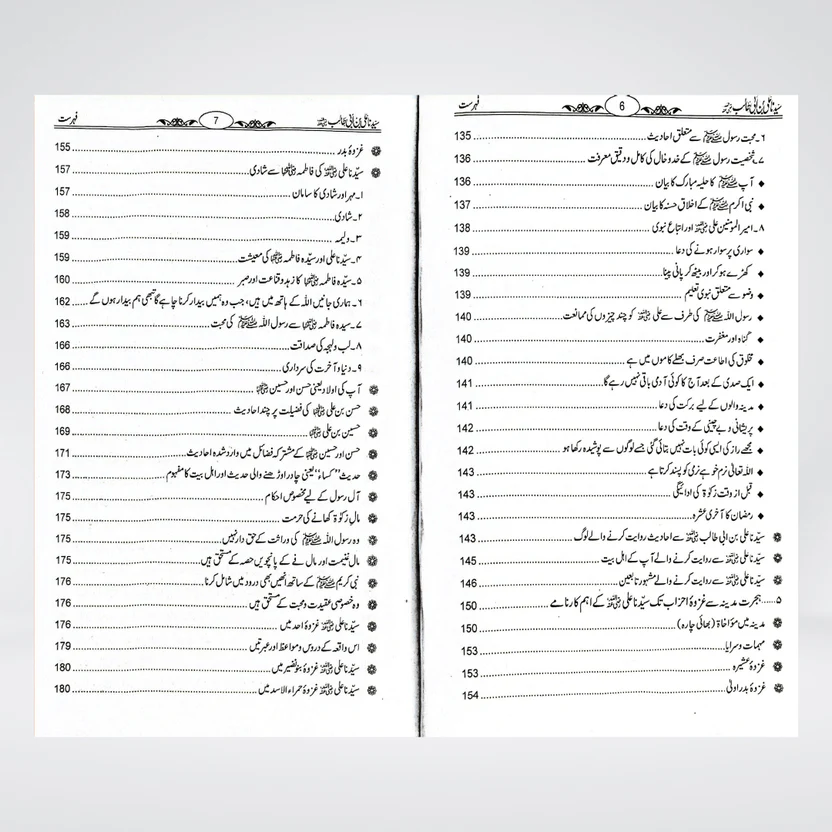 سیدنا علی بن ابی طالب رضی اللہ عنہ 6 فہرست
٦۔ محبت رسول ﷺ سے متعلق احادیث 135
٧۔ شخصیت رسول ﷺ کے خدوخال کی کامل و دقیق معرفت 136
♦ آپ ﷺ کا حلیہ مبارک کا بیان 136
♦ نبی اکرم ﷺ کے اخلاق حسنہ کا بیان 137
٨۔ امیر المومنین علی رضی اللہ عنہ اور اتباع نبوی 138
♦ سواری پر سوار ہونے کی دعا 139
♦ کھڑے ہو کر اور بیٹھ کر پانی پینا 139
♦ وضو سے متعلق نبوی تعلیم 139
♦ رسول اللہ ﷺ کی طرف سے علی رضی اللہ عنہ کو چند چیزوں کی ممانعت 140
♦ گناہ اور مغفرت 140
♦ مخلوق کی اطاعت صرف بھلے کاموں میں ہے 140
♦ ایک صدی کے بعد آج کا کوئی آدمی باقی نہیں رہے گا 141
♦ مدینہ والوں کے لیے برکت کی دعا 141
♦ پریشانی و بے چینی کے وقت کی دعا 142
♦ مجھے راز کی ایسی کوئی بات نہیں بتائی گئی جسے لوگوں سے پوشیدہ رکھا ہو 142
♦ اللہ تعالیٰ نرم خو ہے نرمی کو پسند کرتا ہے 143
♦ قبل از وقت زکوٰۃ کی ادائیگی 143
♦ رمضان کا آخری عشرہ 143
❁ سیدنا علی بن ابی طالب رضی اللہ عنہ سے احادیث روایت کرنے والے لوگ 143
❁ سیّدنا علی رضی اللہ عنہ سے روایت کرنے والے آپ کے اہل بیت 145
❁ سیّدنا علی رضی اللہ عنہ سے روایت کرنے والے مشہور تابعین 146
٥..... ہجرت مدینہ سے غزوۂ احزاب تک سیّدنا علی رضی اللہ عنہ کے اہم کارنامے 150
❁ مدینہ میں مؤاخاۃ (بھائی چارہ) 150
❁ مہمات و سرایا 153
❁ غزوۂ عشیرہ 153
❁ غزوۂ بدر اولیٰ 154
سیّدنا علی بن ابی طالب رضی اللہ عنہ 7 فہرست
❁ غزوۂ بدر 155
❁ سیّدنا علی رضی اللہ عنہ کی فاطمہ رضی اللہ عنہا سے شادی 157
١۔ مہر اور شادی کا سامان 157
٢۔ شادی 158
٣۔ ولیمہ 159
٤۔ سیّدنا علی اور سیّدہ فاطمہ رضی اللہ عنہما کی معیشت 159
٥۔ سیّدہ فاطمہ رضی اللہ عنہا کا زہد و قناعت اور صبر 160
٦۔ ہماری جانیں اللہ کے ہاتھ میں ہیں، جب وہ ہمیں بیدار کرنا چاہے گا تبھی ہم بیدار ہوں گے 162
٧۔ سیدہ فاطمہ رضی اللہ عنہا سے رسول اللہ ﷺ کی محبت 163
٨۔ لب و لہجہ کی صداقت 166
٩۔ دنیا و آخرت کی سرداری 166
❁ آپ کی اولاد یعنی حسن اور حسین رضی اللہ عنہما 167
❁ حسن بن علی رضی اللہ عنہما کی فضیلت پر چند احادیث 168
❁ حسین بن علی رضی اللہ عنہما 169
❁ حسن اور حسین رضی اللہ عنہما کے مشترکہ فضائل میں وارد شدہ احادیث 171
❁ حدیث "کساء" یعنی چادر اوڑھنے والی حدیث اور اہل بیت کا مفہوم 173
❁ آل رسول کے لیے مخصوص احکام 175
❁ مال زکوٰۃ کھانے کی حرمت 175
❁ وہ رسول اللہ ﷺ کی وراثت کے حق دار نہیں 175
❁ مال غنیمت اور مال فے کے پانچویں حصہ کے مستحق ہیں 175
❁ نبی کریم ﷺ کے ساتھ انھیں بھی درود میں شامل کرنا 176
❁ وہ خصوصی عقیدت و محبت کے مستحق ہیں 176
❁ سیّدنا علی رضی اللہ عنہ غزوۂ احد میں 176
❁ اس واقعہ کے دروس و مواعظ اور عبرتیں 179
❁ سیّدنا علی رضی اللہ عنہ غزوۂ بنو نضیر میں 180
❁ سیّدنا علی رضی اللہ عنہ غزوۂ حمراء الاسد میں 180